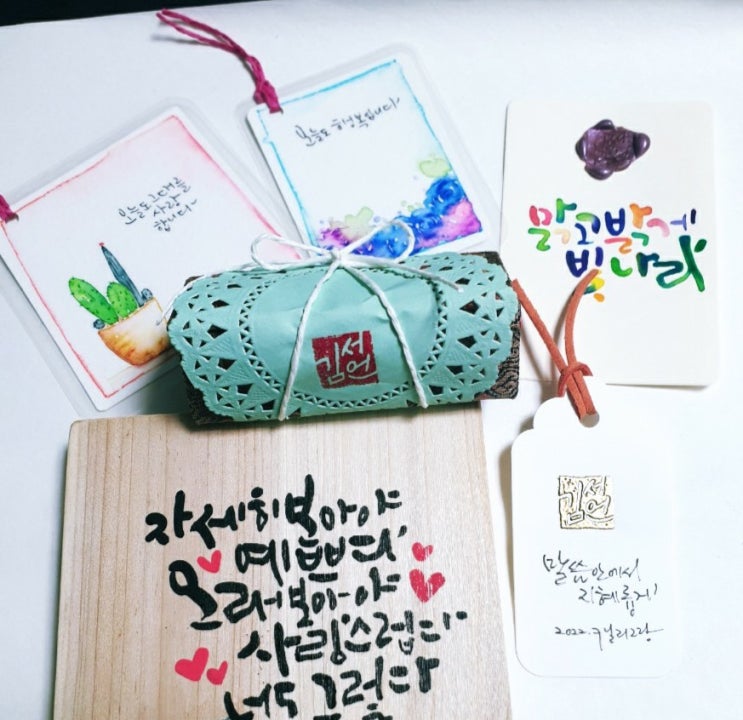 오늘도 그대를
사랑
합니다~
오늘도 행복합니다
맑고 밝게
빛나라
자세히 보아야
예쁘다
오래 보아야
사랑스럽다
너도 그렇다
말씀 안에서
지혜롭게
2022.